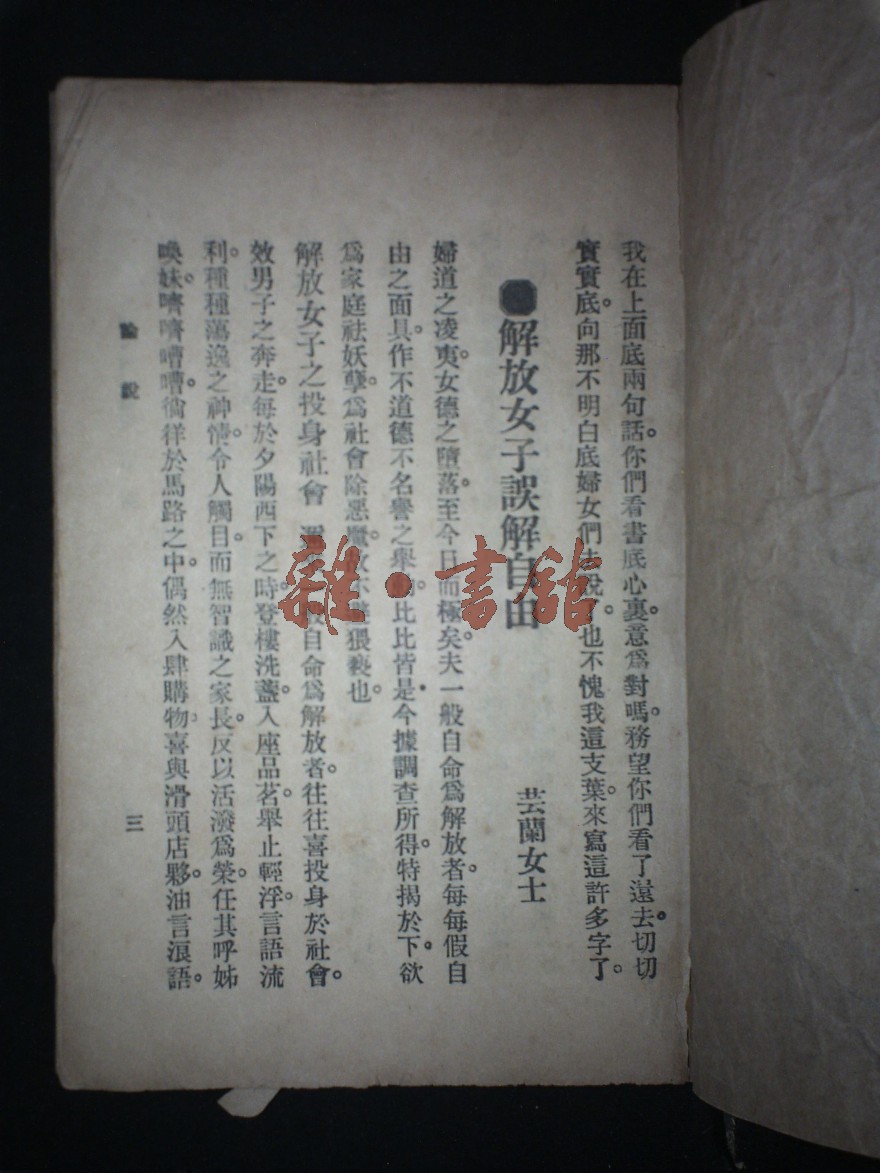 我在上面底兩句話。你們看書底心裏。意爲對嗎。務望你們看了還去。切切
實實底。向那不明白底婦女們去說。也不愧我這支葉。來寫這許多字了。
解放女子誤解自由
芸蘭女士
婦道之凌夷。女德之墮落。至今日而極矣。夫一般自命爲解放者。每每假自
由之面具。作不道德不名譽之舉動。比比皆是。今據調查所得。特揭於下。欲
爲家庭祛妖孽。爲社會除惡 故不避猥褻也。
解放女子之投身社會 自命爲解放者。往往喜投身於社會。
效男子之奔走。每於夕陽西下之時。登樓洗盞。入座品茗。舉止輕浮。言語流
利。種種蕩逸之神情。令人觸目。而無智識之家長。反以活潑爲榮。任其呼姊
喚妹。嘈嘈。徜徉於馬路之中。偶然入肆購物。喜與滑頭店夥。油言浪語。
論說
三
雜·書館